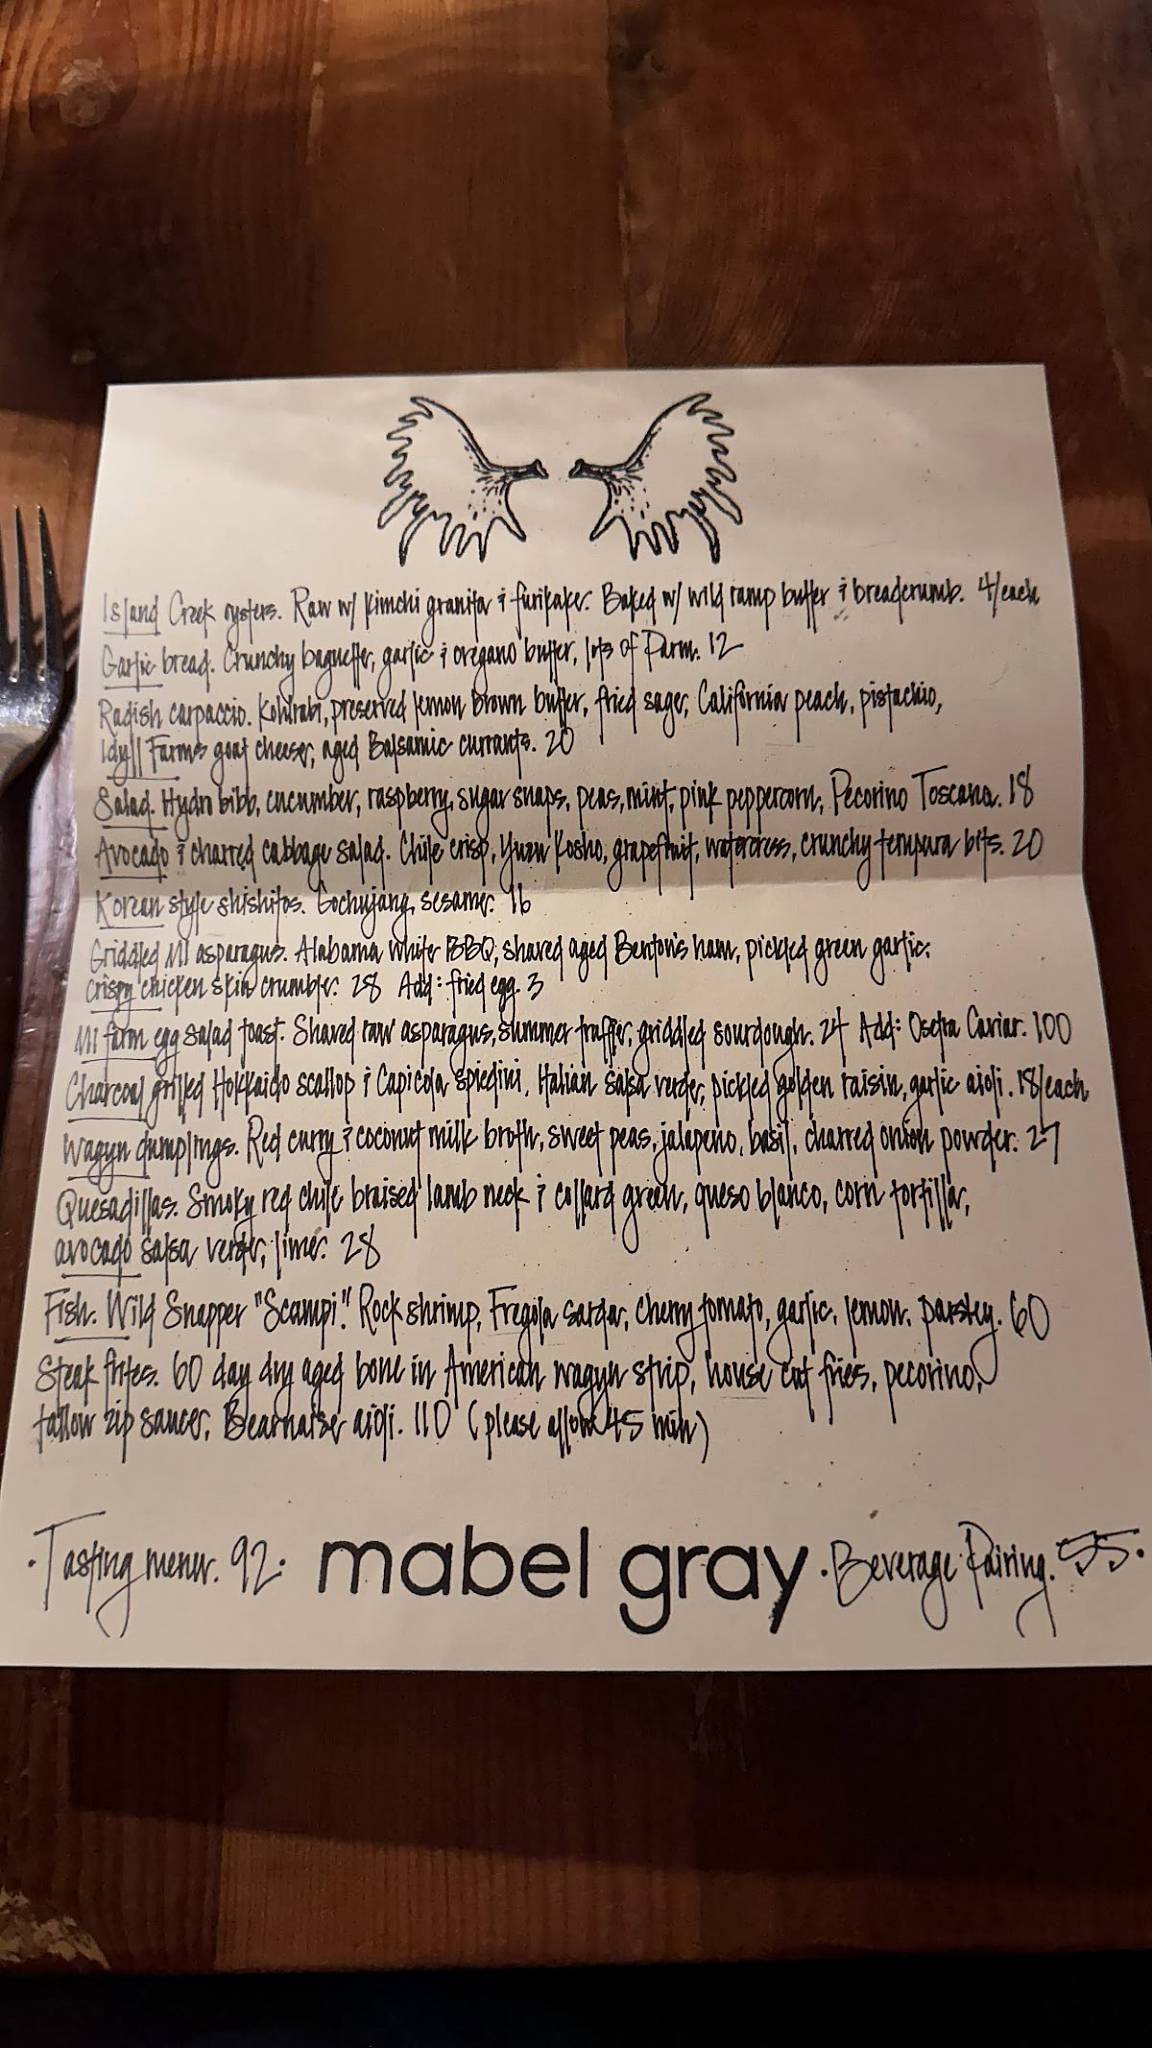 Island Creek oysters. Raw w/ kimchi granita & furikake. Baked w/ wild ramp butter & breadcrumb. 4/each
Garlic bread. Crunchy baguette, garlic & oregano butter, lots of Parm. 12
Radish carpaccio. Kohlrabi, preserved lemon brown butter, fried sage, California peach, pistachio,
Idyll Farms goat cheese, aged Balsamic currants. 20
Salad. Hydro bibb, cucumber, raspberry, sugar snaps, peas, mint, pink peppercorn, Pecorino Toscana. 18
Avocado & charred cabbage salad. Chile crisp, Yuzu Kosho, grapefruit, watercress, crunchy tempura bits. 20
Korean style shishitos. Gochujang, sesame. 16
Griddled MI asparagus. Alabama white BBQ, shaved aged Benton's ham, pickled green garlic.
Crispy chicken skin crumble. 28 Add: fried egg. 3
MI farm egg salad toast. Shaved raw asparagus, summer truffle, griddled sourdough. 24 Add: Osetra Caviar. 100
Charcoal grilled Hokkaido scallop & Capicola spiedini. Italian salsa verde, pickled golden raisin, garlic aioli. 18/each
Wagyu dumplings. Red curry & coconut milk broth, sweet peas, jalapeno, basil, charred onion powder. 27
Quesadillas. Smoky red chile braised lamb neck & collard green, queso blanco, corn tortilla,
avocado salsa verde, lime. 28
Fish. Wild Snapper "Scampi". Rock shrimp, Fregola sarda, cherry tomato, garlic, lemon, parsley. 60
Steak frites. 60 day dry aged bone in American wagyu strip, house cut fries, pecorino,
tallow zip sauce, Bearnaise aioli. 110 (please allow 45 min)
·Tasting menu. 92· mabel gray ·Beverage Pairing. 55·